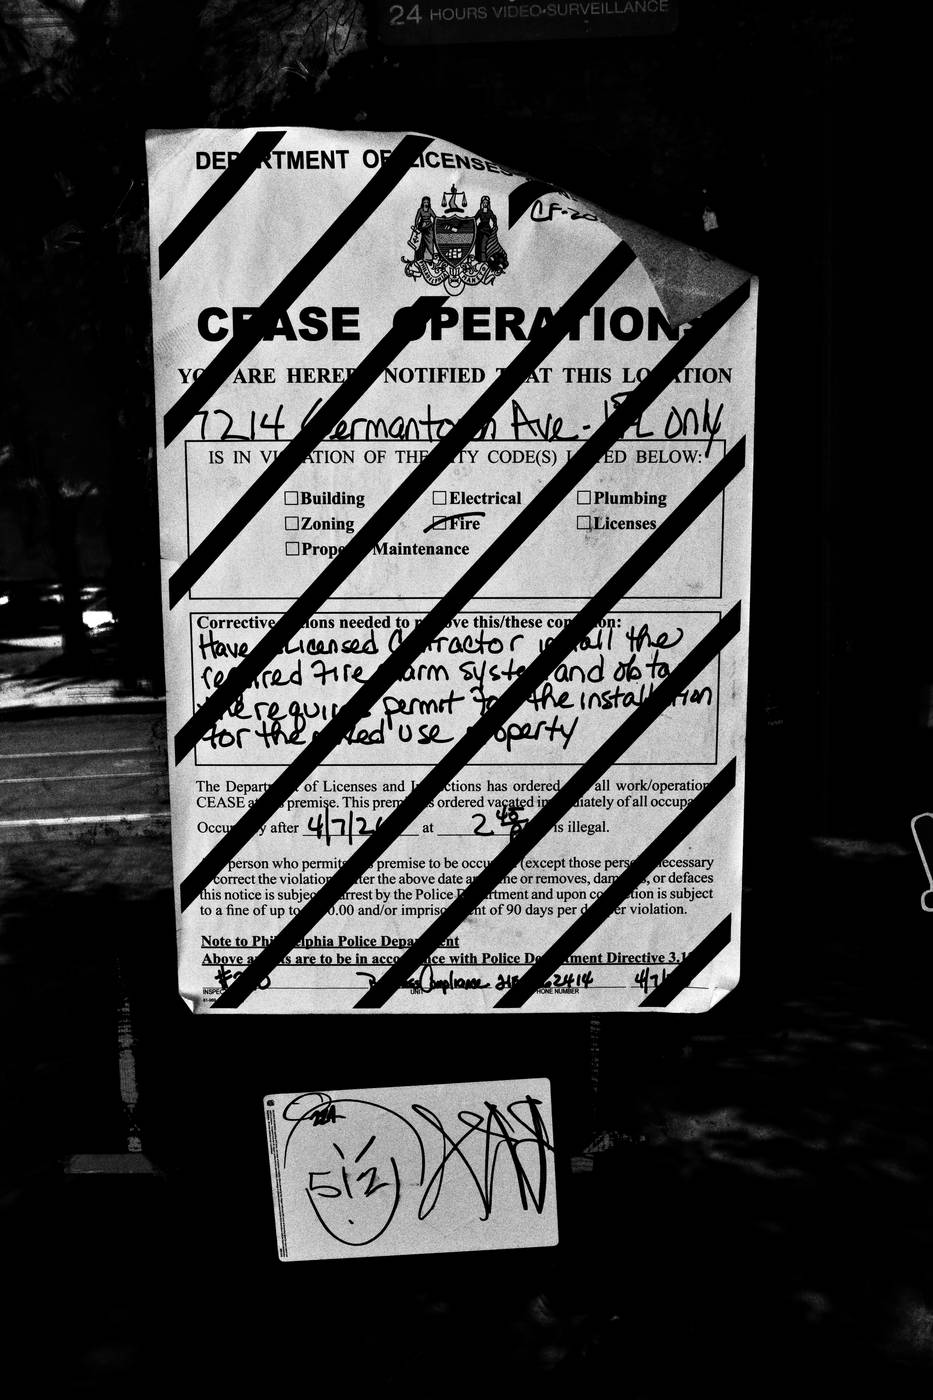 24 HOURS VIDEO•SURVEILLANCE
DEPARTMENT OF LICENSES
CF-20
CEASE OPERATIONS
YOU ARE HEREBY NOTIFIED THAT THIS LOCATION
7214 Germantown Ave. - 1st FL only
IS IN VIOLATION OF THE CITY CODE(S) LISTED BELOW:
Building Electrical Plumbing
Zoning Fire Licenses
Property Maintenance
Corrective actions needed to remove this/these condition:
Have a Licensed Contractor install the
required Fire alarm system and obtain
the required permit for the installation
for the mixed use property
The Department of Licenses and Inspections has ordered all work/operation
CEASE at premise. This premise is ordered vacated immediately of all occupa
Occupancy after 4/7/2 at 2 45 is illegal.
Any person who permits this premise to be occupied (except those persons necessary
to correct the violation) after the above date and time or removes, damages, or defaces
this notice is subject to arrest by the Police Department and upon conviction is subject
to a fine of up to 0.00 and/or imprisonment of 90 days per day per violation.
Note to Philadelphia Police Department
Above arrests are to be in accordance with Police Department Directive 3.1
Business Compliance 2414 4/7
UNIT PHONE NUMBER
512